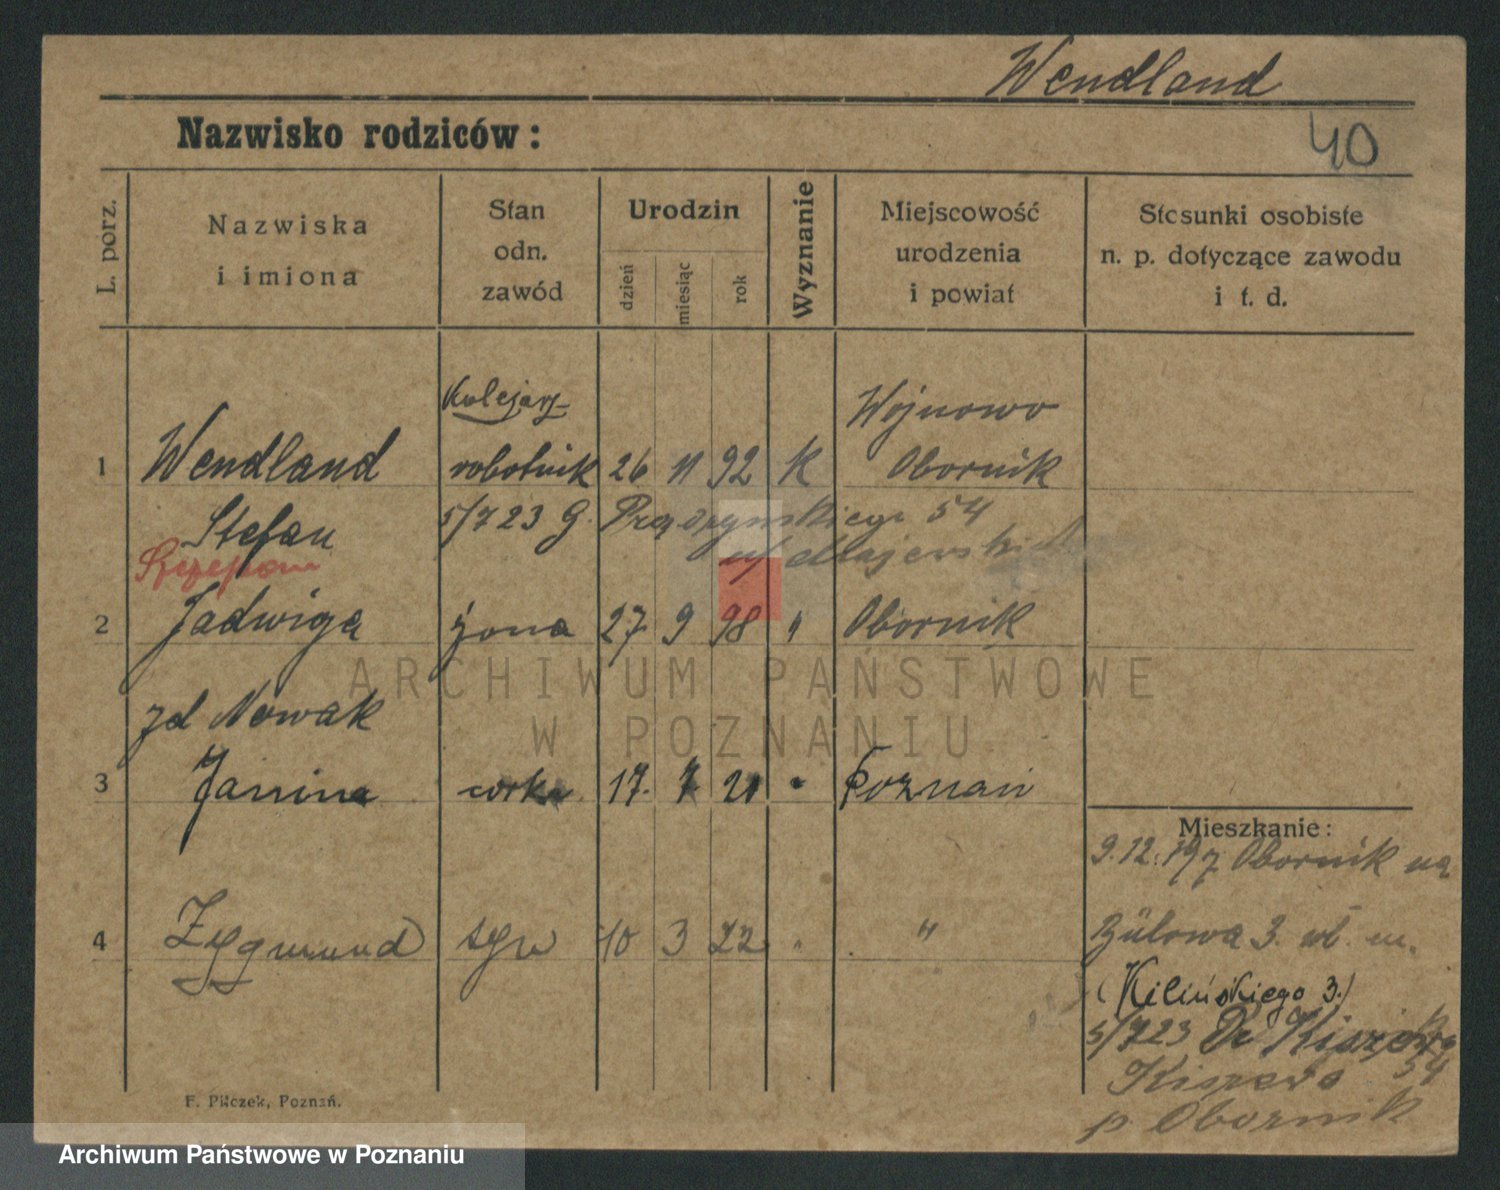 Wendland
Nazwisko rodziców:
40
L. porz.
Nazwiska
i imiona
Stan
odn.
zawód
Urodzin
dzień
miesiąc
rok
Wyznanie
Miejscowość
urodzenia
i powiat
Stosunki osobiste
n. p. dotyczące zawodu
i t. d.
Kolejarz
Wojnowo
1 Wendland robotnik 26 11 92 K Obornik
Stefan 5/7 23 G. Prądzyńskiego 54
Szczepan
2 Jadwiga żona 27 9 98 " Obornik
zd Nowak
3 Janina corka 17. 7. 21 " Poznań
Mieszkanie:
9.12.19 z Obornik na
4 Zygmund syn 10 3 22 " "
Bülowa 3. wl. m.
(Kilińskiego 3.)
5/7 23
54
p. Obornik
F. Pilczek, Poznań.
ARCHIWUM PAŃSTWOWE
W POZNANIU
Archiwum Państwowe w Poznaniu